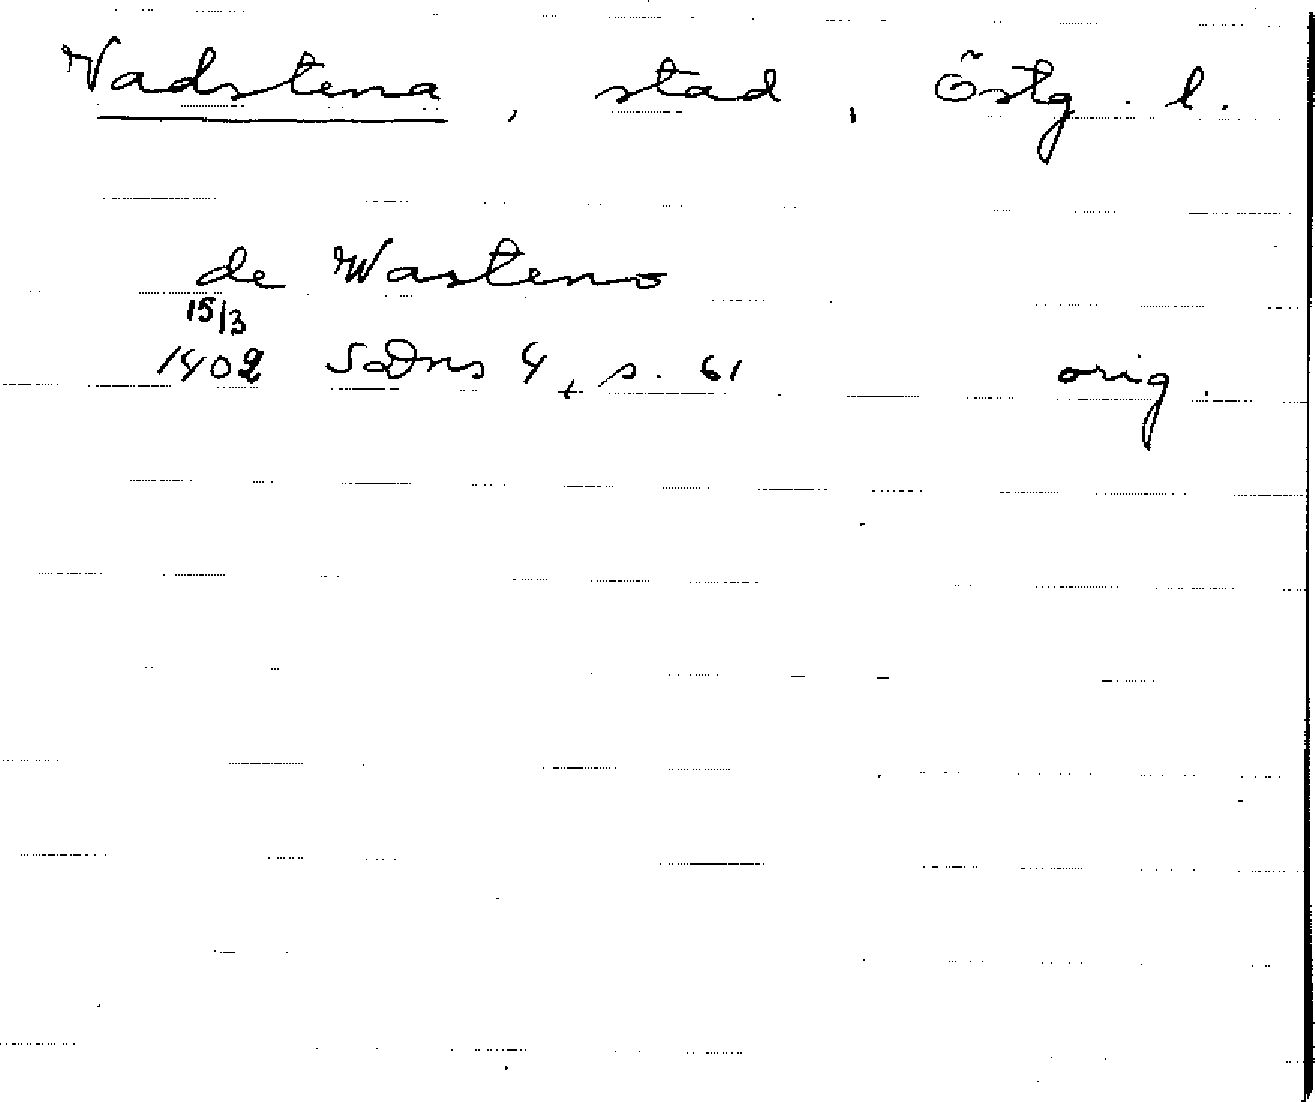 Vadstena, stad, Östg. l.
de Wasteno
15/3
1402 SDns 4, s. 61 orig.